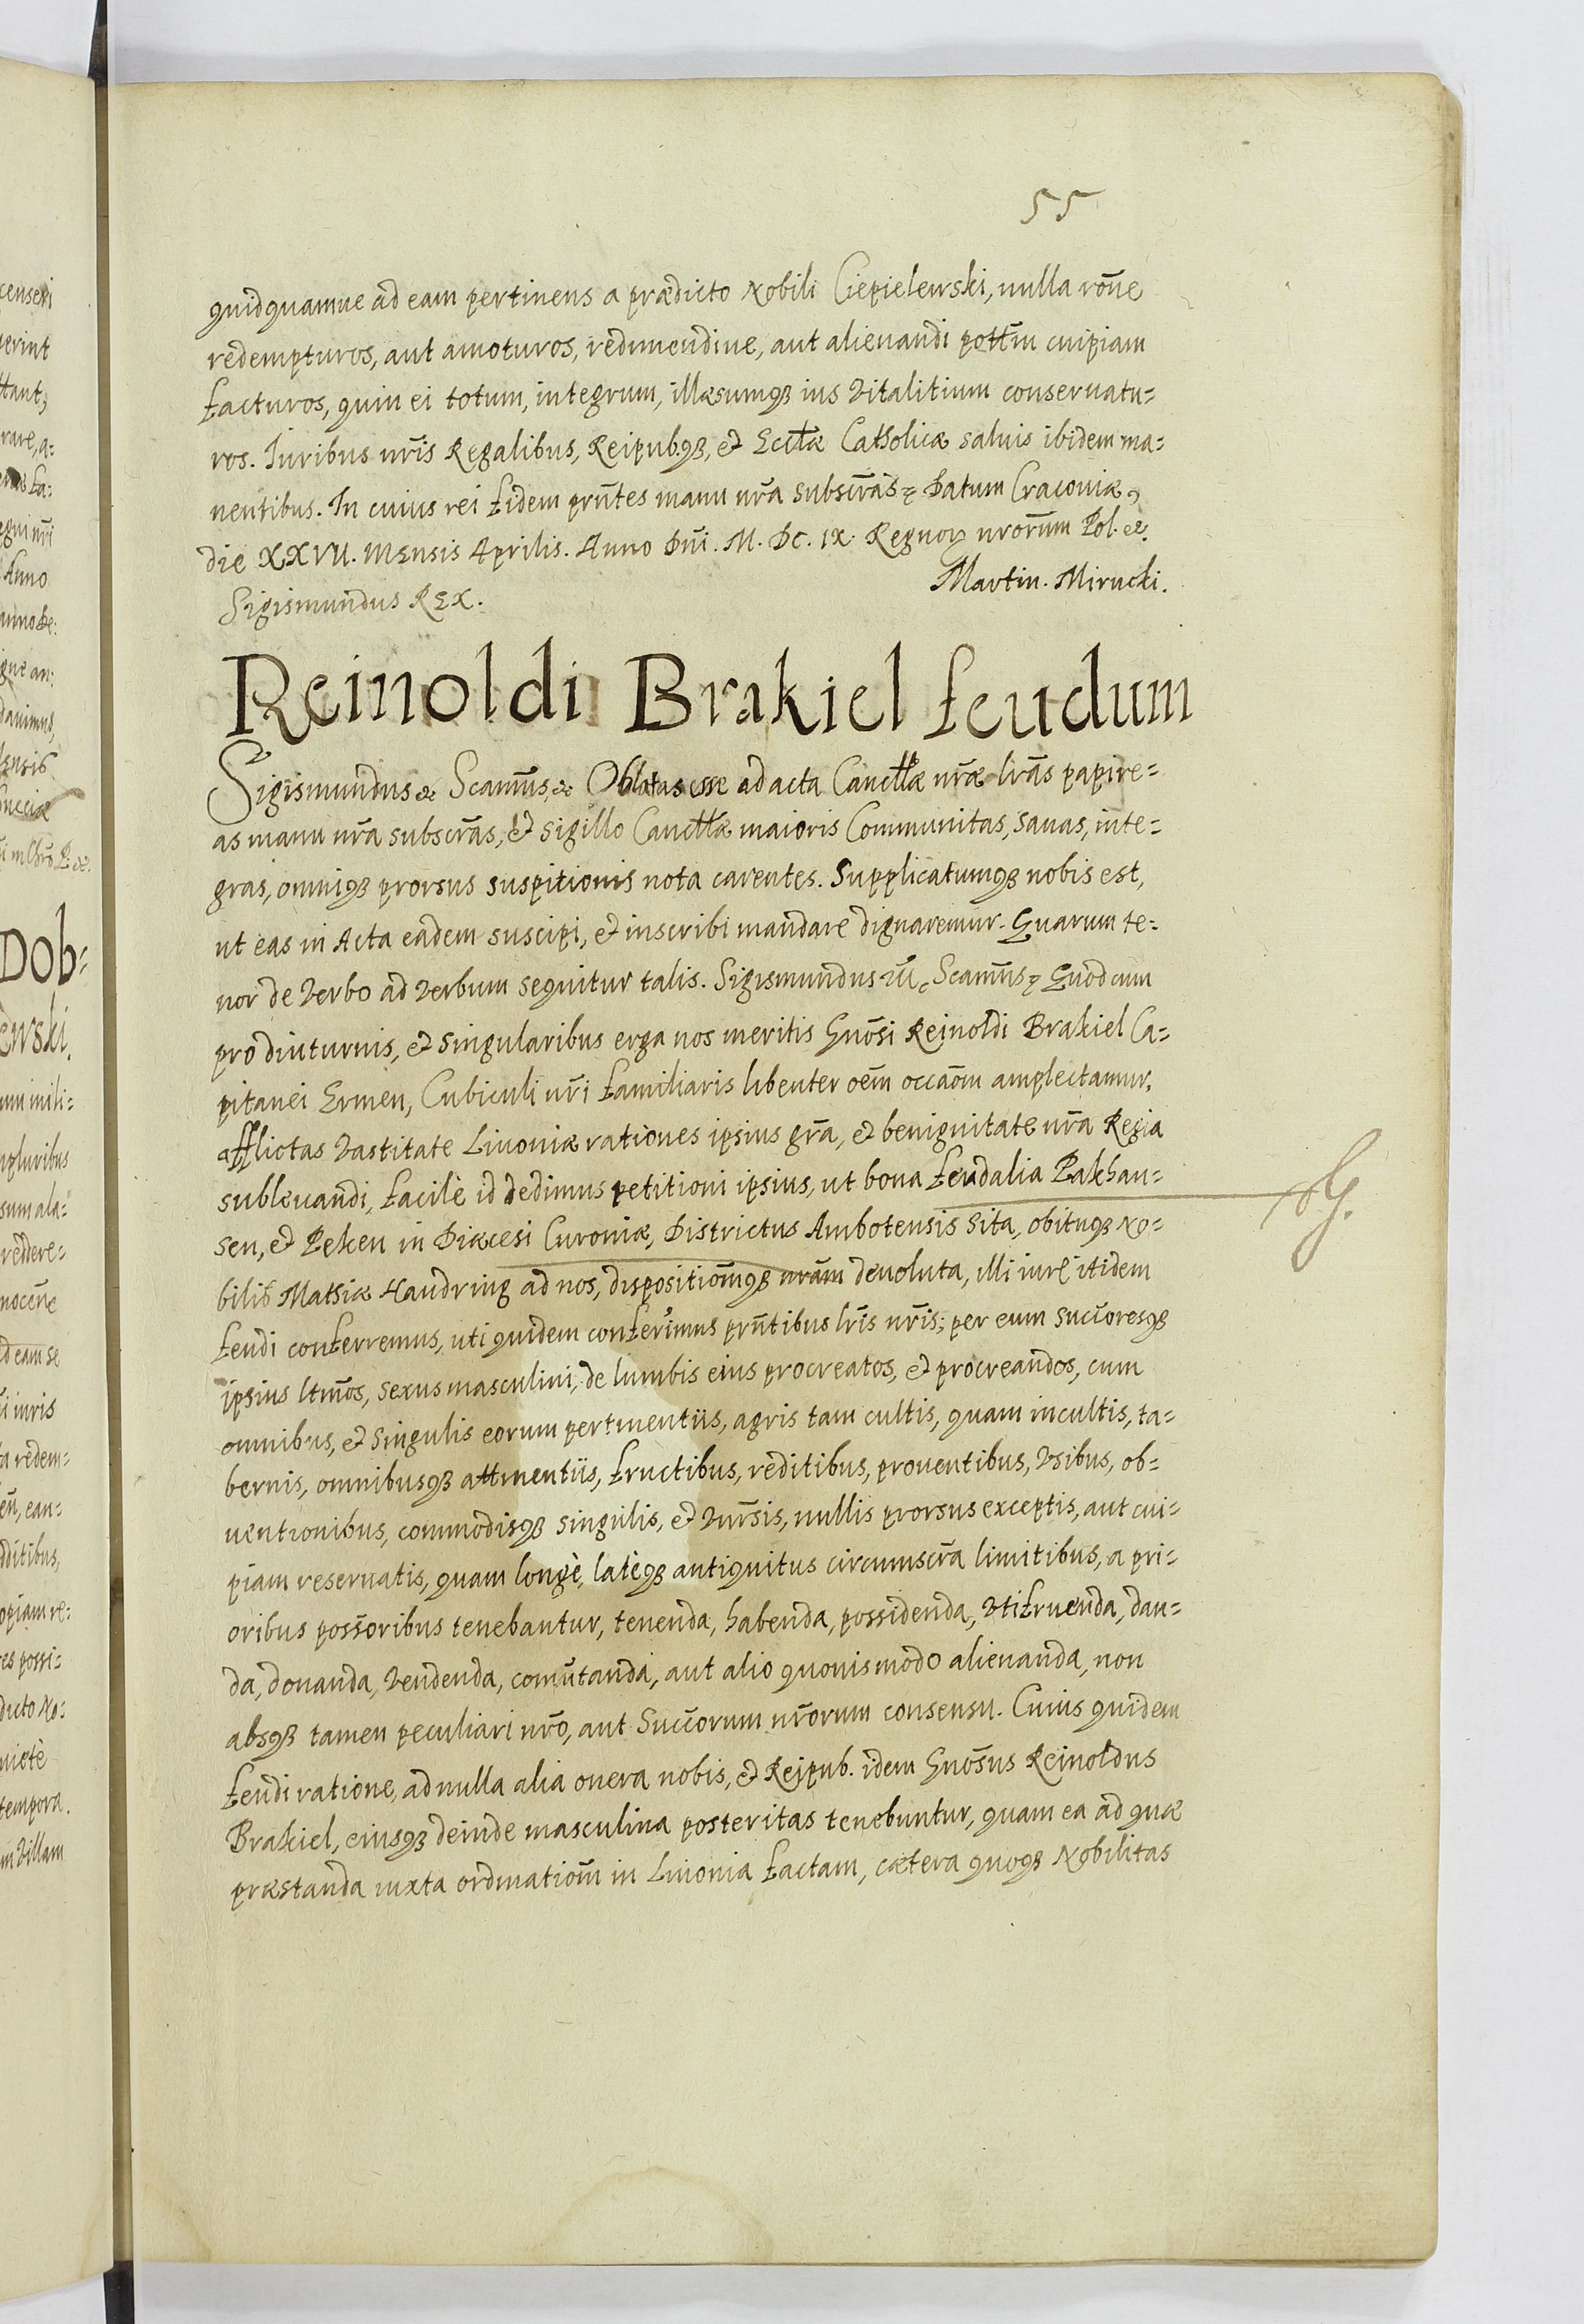 55
quidquamue ad eam pertinens a prædicto Nobili Ciepielewski, nulla rōne
redempturos, aut amoturos, redimendiue, aut alienandi pottm̄ cuipiam
facturos, quin ei totum, integrum, illæsumqꝫ ius vitalitium conseruatu=
ros. Iuribus nr̄is Regalibus, Reipub.qꝫ, et Eccłæ Catholicæ saluis ibidem ma=
nentibus. In cuius rei fidem prn̄tes manu nr̄a subscr̄as ꝛ Datum Cracoviæ,
die XXVII. Mensis Aprilis. Anno Dn̄i. M. DC. IX. Regnoꝝ nrōrum Pol. etc.
Sigismundus Rex.
Martin. Mirucki.
Reinoldi Brakiel feudum
Sigismundus etc Scamūs, etc Oblatas esse ad acta Cancłłæ nr̄æ lr̄as papire=
as manu nr̄a subscr̄as, et sigillo Cancłłæ maioris Communitas, sanas, inte=
gras, omniqꝫ prorsus suspitionis nota carentes. Supplicatumqꝫ nobis est,
ut eas in Acta eadem suscipi, et inscribi mandare dignaremur. Quarum te=
nor de verbo ad verbum sequitur talis. Sigismundus III. Scamūs ꝛ Quod cum
pro diuturnis, et singularibus erga nos meritis Gnōsi Reinoldi Brakiel Ca=
pitanei Ermen, Cubiculi nr̄i familiaris libenter oēm occaōm amplectamur,
afflictas vastitate Livoniæ rationes ipsius gr̄a, et benignitate nr̄a Regia
subleuandi, facilè id dedimus petitioni ipsius, ut bona feudalia Pakhau=
sen, et Peken in Diæcesi Curoniæ, Districtus Ambotensis sita, obituqꝫ No=
bilis Mathiæ Handring ad nos, dispositiōmqꝫ nrām deuoluta, illi iure itidem
feudi conferremus, uti quidem conferimus prn̄tibus lr̄is nr̄is; per eum succ̄oresqꝫ
ipsius ltm̄os, sexus masculini, de lumbis eius procreatos, et procreandos, cum
omnibus, et singulis eorum pertinentiis, agris tam cultis, quam incultis, ta=
bernis, omnibusqꝫ attinentiis, fructibus, reditibus, prouentibus, vsibus, ob=
uentionibus, commodisqꝫ singulis, et vnr̄sis, nullis prorsus exceptis, aut cui=
piam reseruatis, quam longè, latèqꝫ antiquitus circumscr̄a limitibus, a pri=
oribus poss̄oribus tenebantur, tenenda, habenda, possidenda, vtifruenda, dan=
da, donanda, vendenda, com̄utanda, aut alio quouismodo alienanda, non
absqꝫ tamen peculiari nr̄o, aut Succ̄orum nr̄orum consensu. Cuius quidem
feudi ratione, ad nulla alia onera nobis, et Reipub. idem Gnōsus Reinoldus
Brakiel, eiusqꝫ deinde masculina posteritas tenebuntur, quam ea ad quæ
præstanda iuxta ordinatiōm in Livonia factam, cætera quoqꝫ Nobilitas